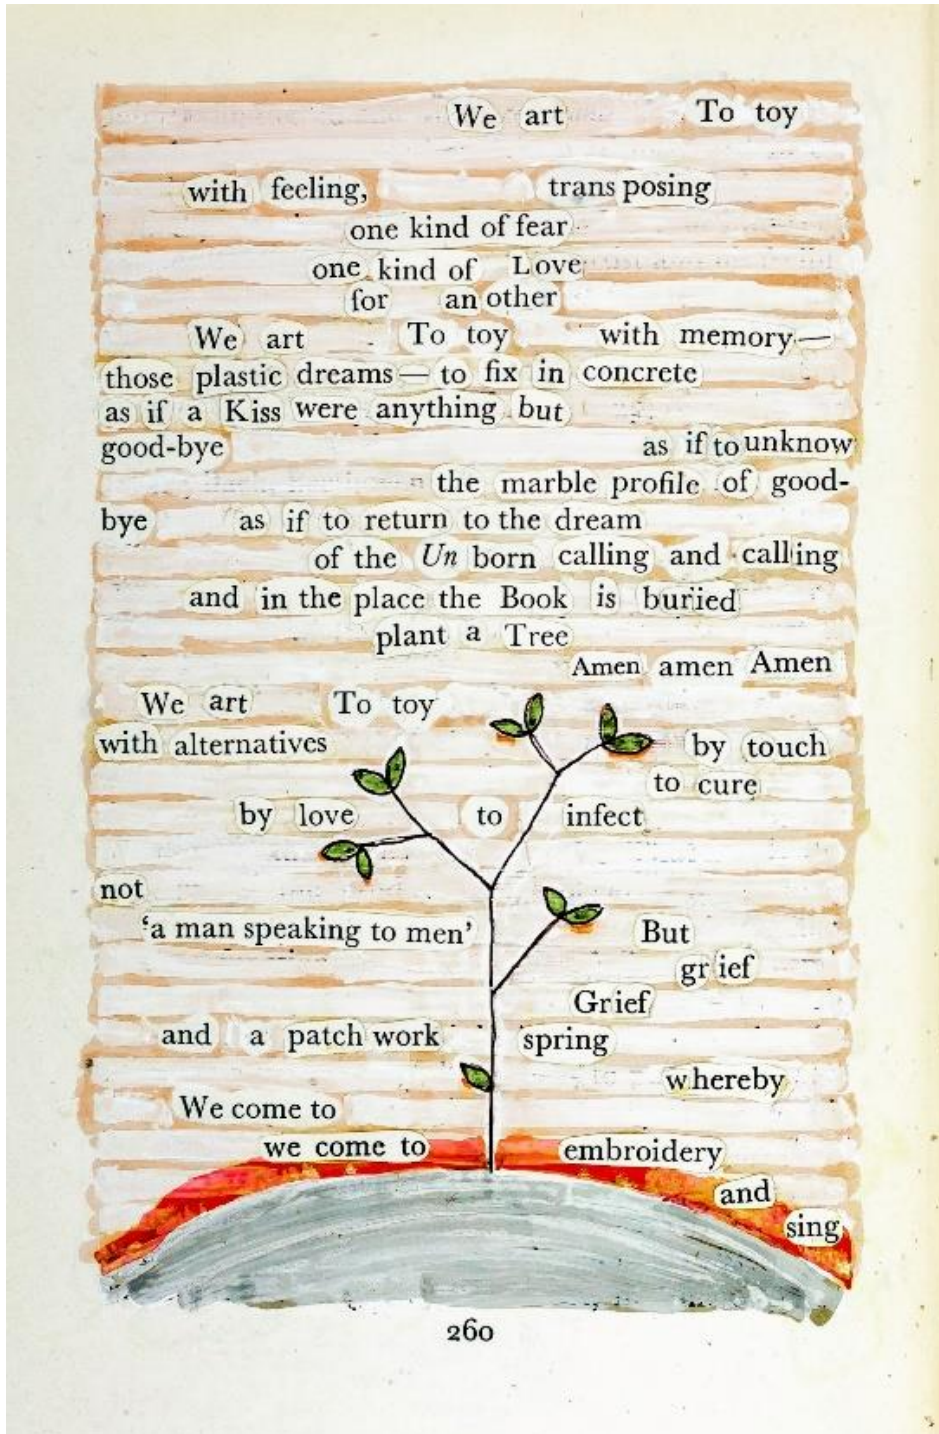 We art To toy
with feeling, trans posing
one kind of fear
one kind of Love
for an other
We art To toy with memory—
those plastic dreams — to fix in concrete
as if a Kiss were anything but
good-bye as if to unknow
the marble profile of good-
bye as if to return to the dream
of the Un born calling and calling
and in the place the Book is buried
plant a Tree
Amen amen Amen
We art To toy
with alternatives by touch
to cure
by love to infect
not
‘a man speaking to men’ But
gr ief
Grief
and a patch work spring
whereby
We come to
we come to embroidery
and
sing
260